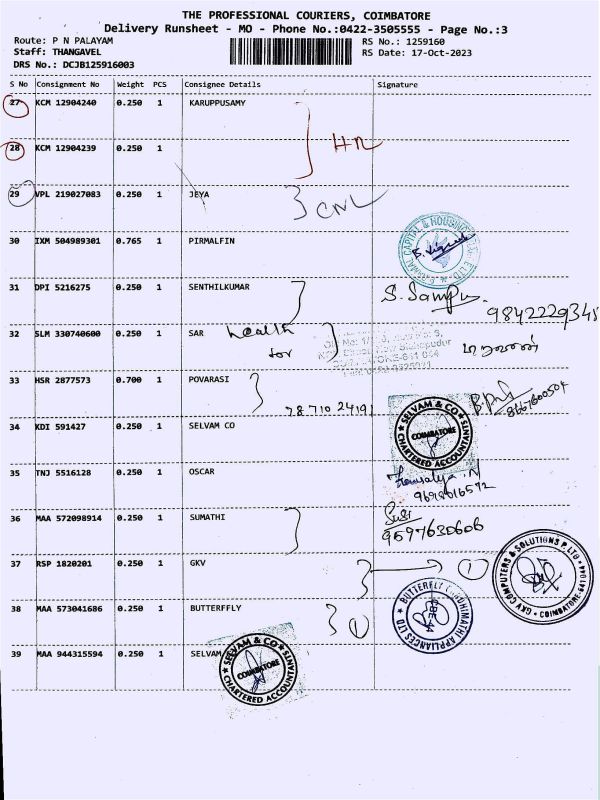 THE PROFESSIONAL COURIERS, COIMBATORE
Delivery Runsheet - MO - Phone No.:0422-3505555 - Page No.:3
Route: P N PALAYAM
Staff: THANGAVEL
DRS No.: DCJB125916003
RS No.: 1259160
RS Date: 17-Oct-2023
S No Consignment No Weight PCS Consignee Details Signature
27 KCM 12904240 0.250 1 KARUPPUSAMY
28 KCM 12904239 0.250 1
29 VPL 219027083 0.250 1 JEYA
30 IXM 504989301 0.765 1 PIRMALFIN
31 DPI 5216275 0.250 1 SENTHILKUMAR
9842229345
32 SLM 330740600 0.250 1 SAR health
for
33 HSR 2877573 0.700 1 POVARASI
78710 24191
8667600504
34 KDI 591427 0.250 1 SELVAM CO
SELVAM & CO
COIMBATORE
CHARTERED ACCOUNTANTS
35 TNJ 5516128 0.250 1 OSCAR
9698616572
36 MAA 572098914 0.250 1 SUMATHI
Susi
9597630606
37 RSP 1820201 0.250 1 GKV
1
GKV COMPUTERS & SOLUTIONS P. LTD
38 MAA 573041686 0.250 1 BUTTERFFLY
1
39 MAA 944315594 0.250 1 SELVAM
SELVAM & CO
COIMBATORE
CHARTERED ACCOUNTANTS